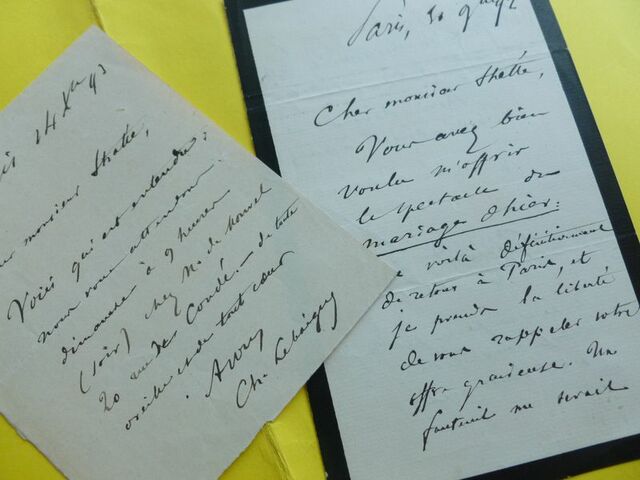 14 Xbre 93
monsieur Stratié,
Voici qui est entendu:
nous vous attendons
dimanche à 9 heures
(soir) chez Me de
20 rue de Condé. de toute
et de tout cœur
Ch.
Paris, 20 9
Cher monsieur
Vous avez bien
voulu m'offrir
le spectacle du
mariage d'hier:
me voilà définitivement
de retour à Paris, et
je prends la liberté
de vous rappeler votre
offre gracieuse. Un
fauteuil me serait